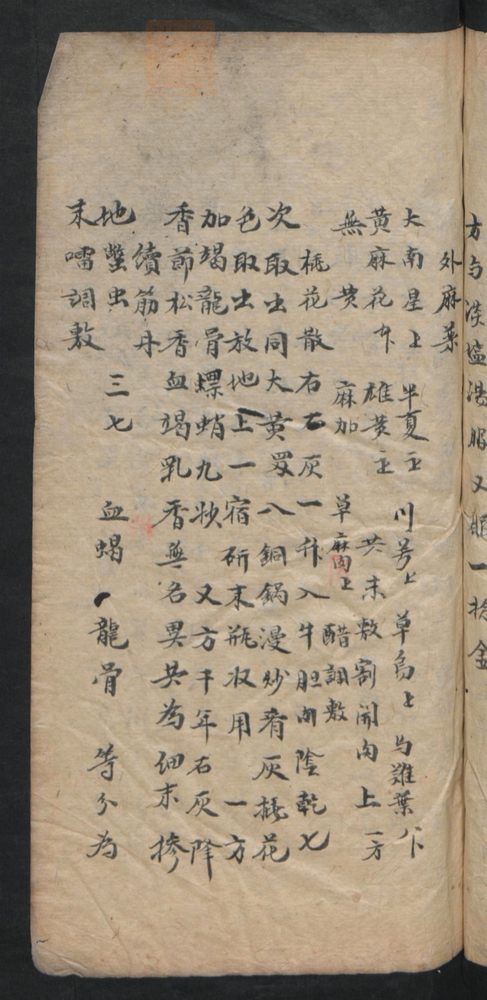 方与淡塩湯服又
外麻藥
大南星上 半夏正 川芎上 草烏上 与難葉卞
黄麻花卞 雄黄正 共末敷割開肉上一方
無黄 麻加 草麻肉上 醋調敷
桃花散 右石灰一升入牛胆內陰乾七
次取出同大黄四八銅鍋漫炒看灰桃花
色取出放地上一宿研末瓶收用 一方
加竭龍骨螵蛸九妙 又方千年石灰降
香節松香血竭乳香無名異共為細末摻
續筋丹
地鱉虫 三七 血蝎 龍骨 等分為
末𠹌調敷